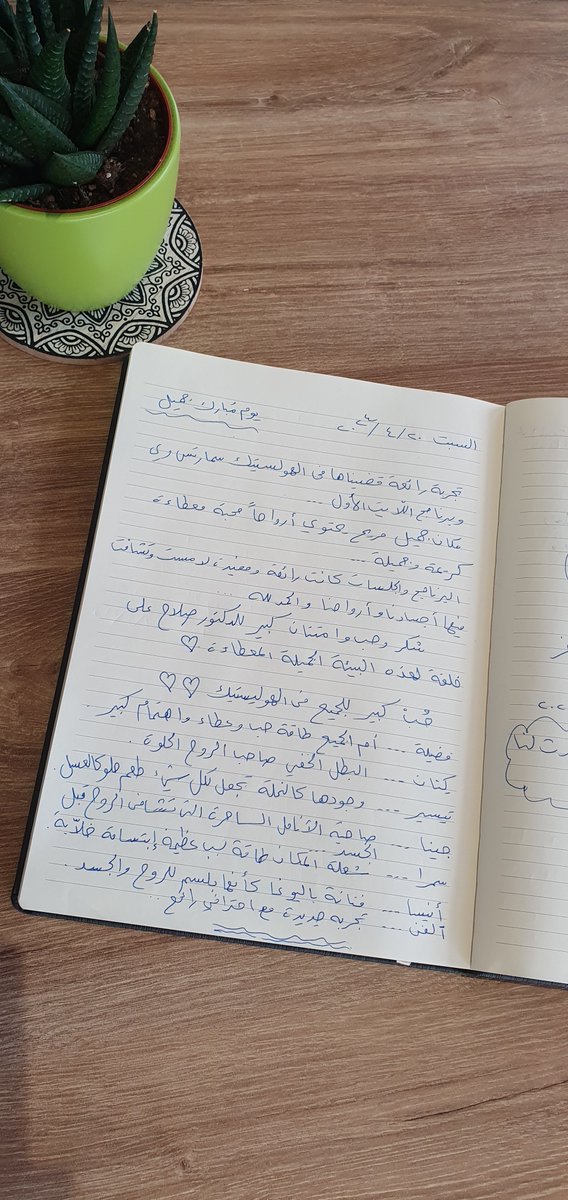 يوم مُبارك جميل
السبت ٢٠/٤/
تجربة رائعة قضيناها في الهولستيك سمارتس وي
وبرنامج اللايت الأول ....
مكان جميل مريح يحتوي أرواحاً محبة معطاءة
كريمة وجميلة ....
البرنامج والجلسات كانت رائعة ومفيدة، لامست وتشافت
فيها أجسادنا وأرواحنا والحمد لله
شكر وحب وامتنان كبير للدكتور صلاح على
خلقه لهذه البيئة الجميلة المعطاءة ♡
حُبّ كبير للجميع في الهوليستيك ♡♡
فضيلة .... أم الجميع طاقة حب وعطاء واهتمام كبير.
كنان .... البطل الخفي صاحب الروح الحلوة.
تيسير .... وجودها كالنحلة تجعل لكل شيء طعم حلو كالعسل.
جينا .... صاحبة الأنامل الساحرة التي تشافي الروح قبل
الجسد ..
سمرا .... شعلة المكان طاقة لب عظيمة إبتسامة خلّابة.
أنيسا .... فنانة باليوغا كأنها بلسم للروح والجسد.
ألفن .... تجربة جديدة مع احترافي رائع.